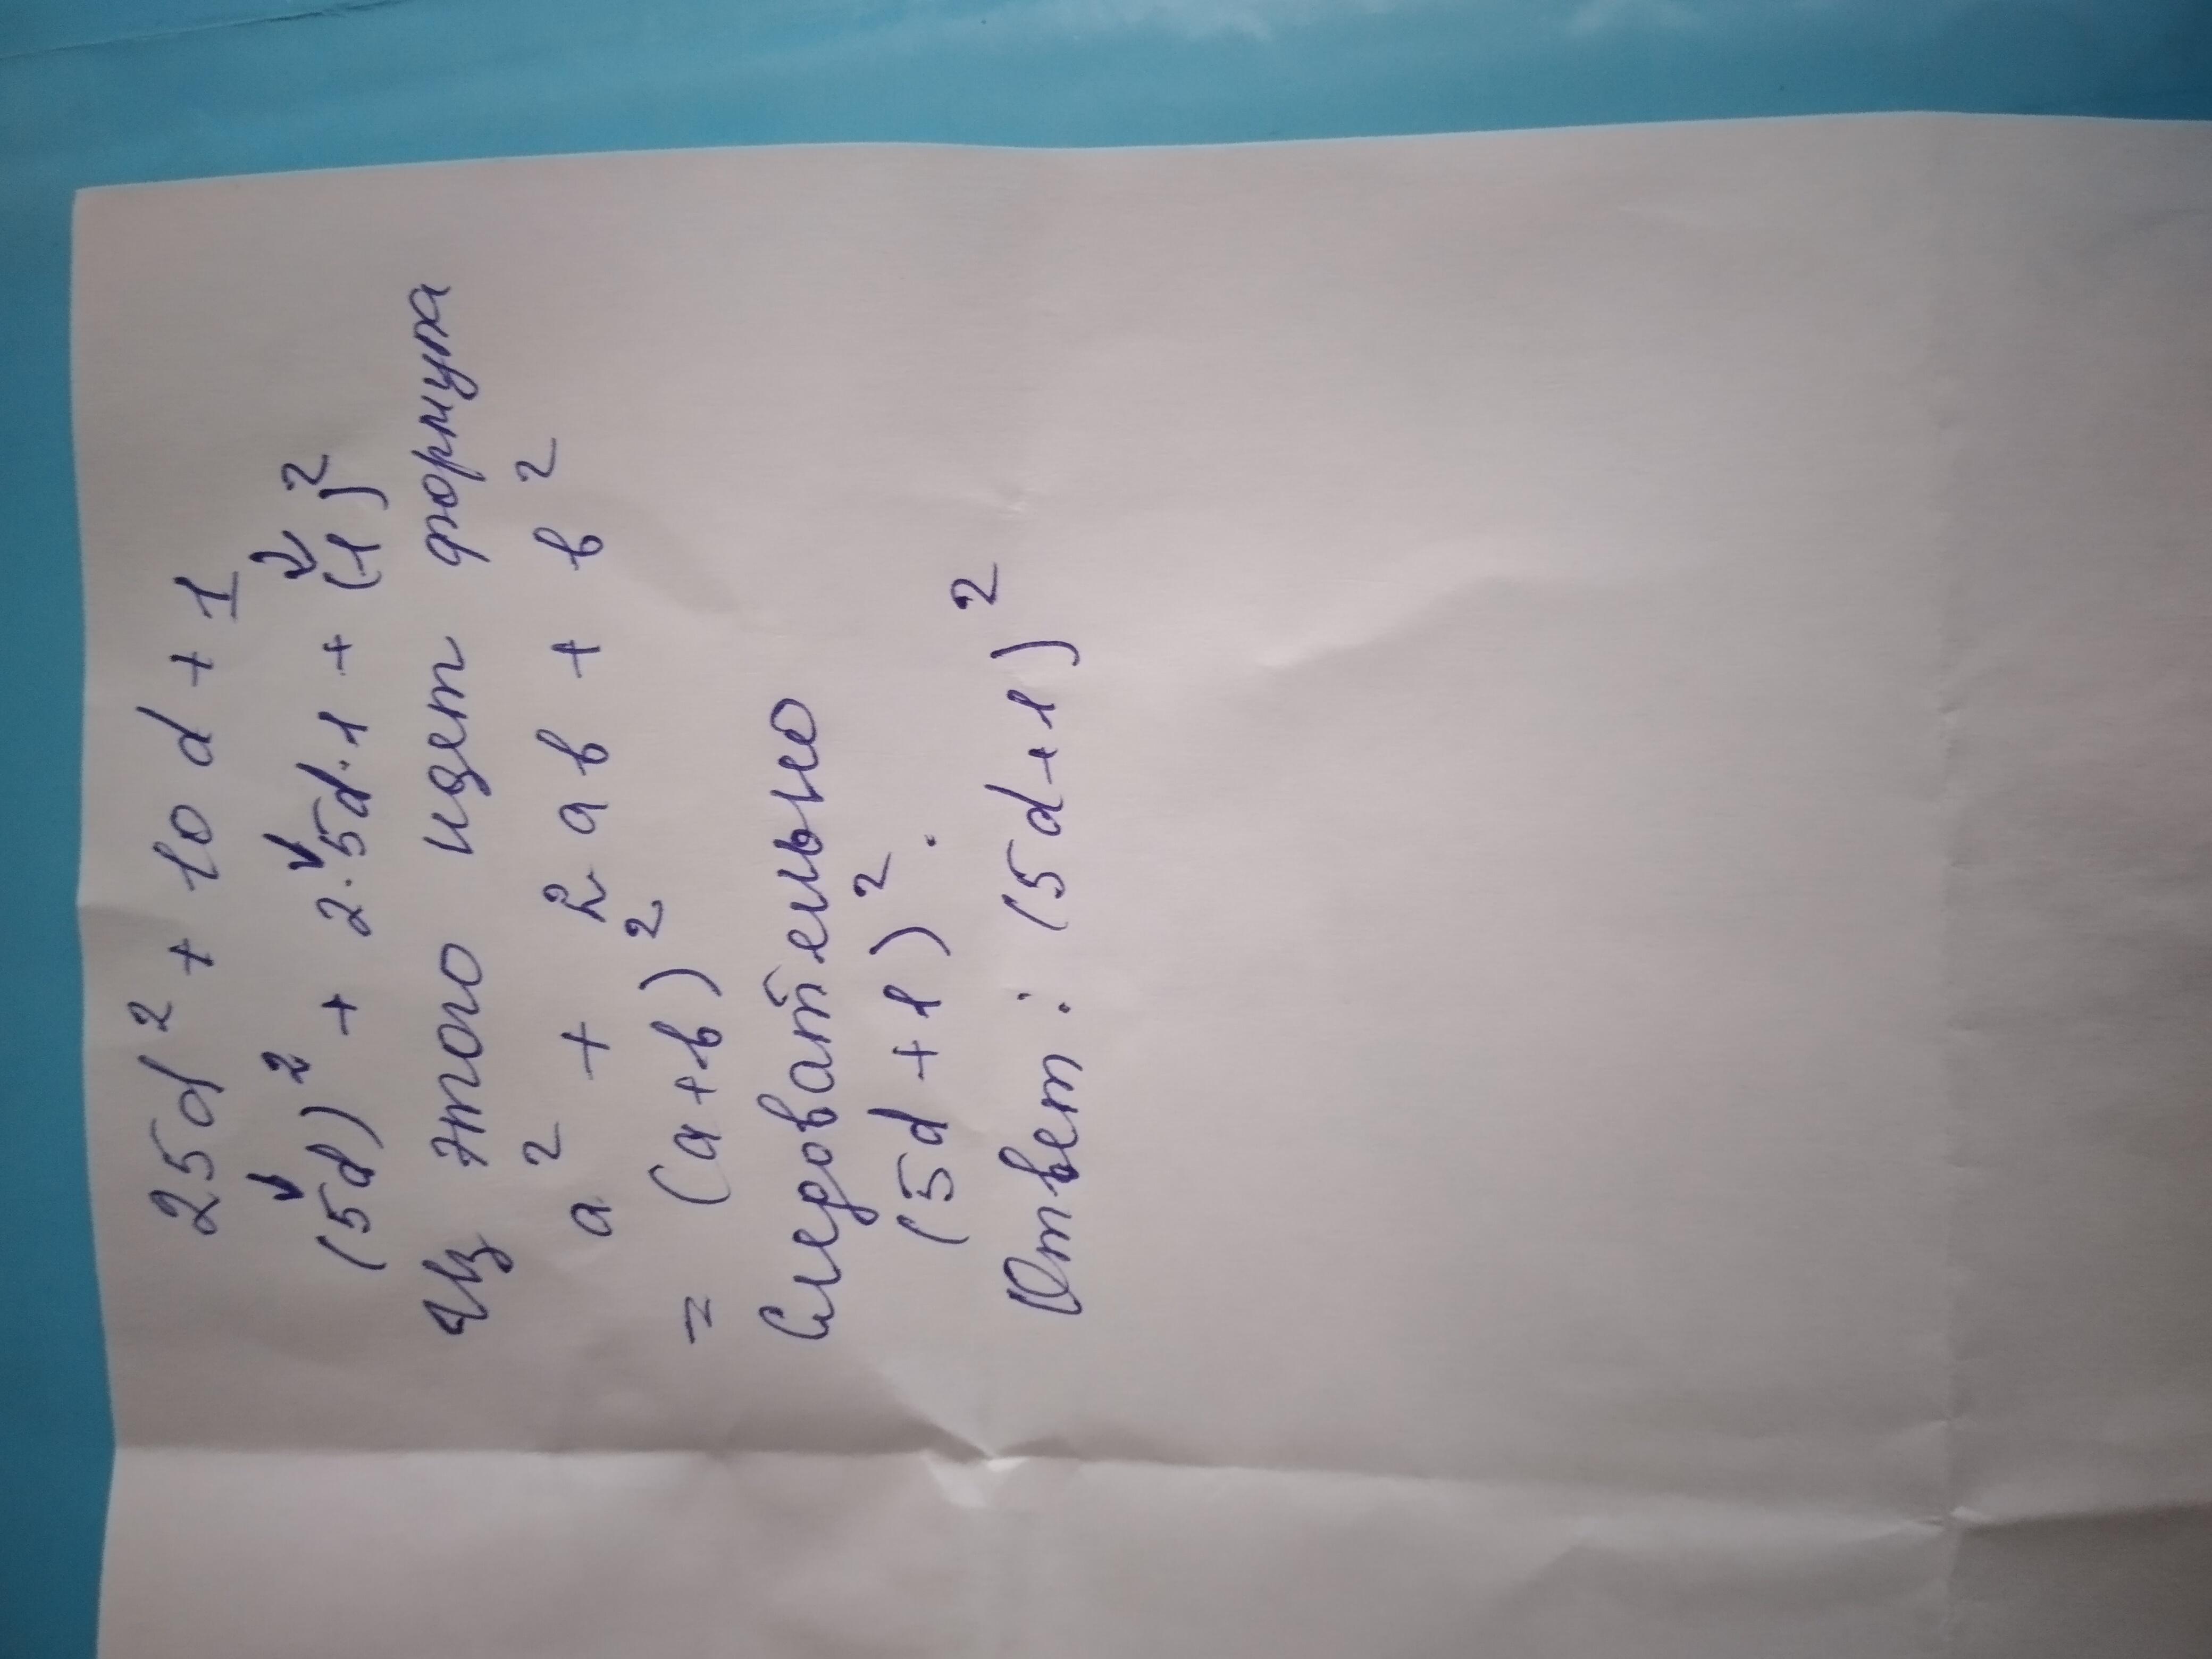 25d² + 10d + 1
(5d)² + 2·5d·1 + (1)²
Из этого идет формула
a² + 2ав + в²
= (а+в)²
Следовательно
(5d+1)².
Ответ: (5d+1)²